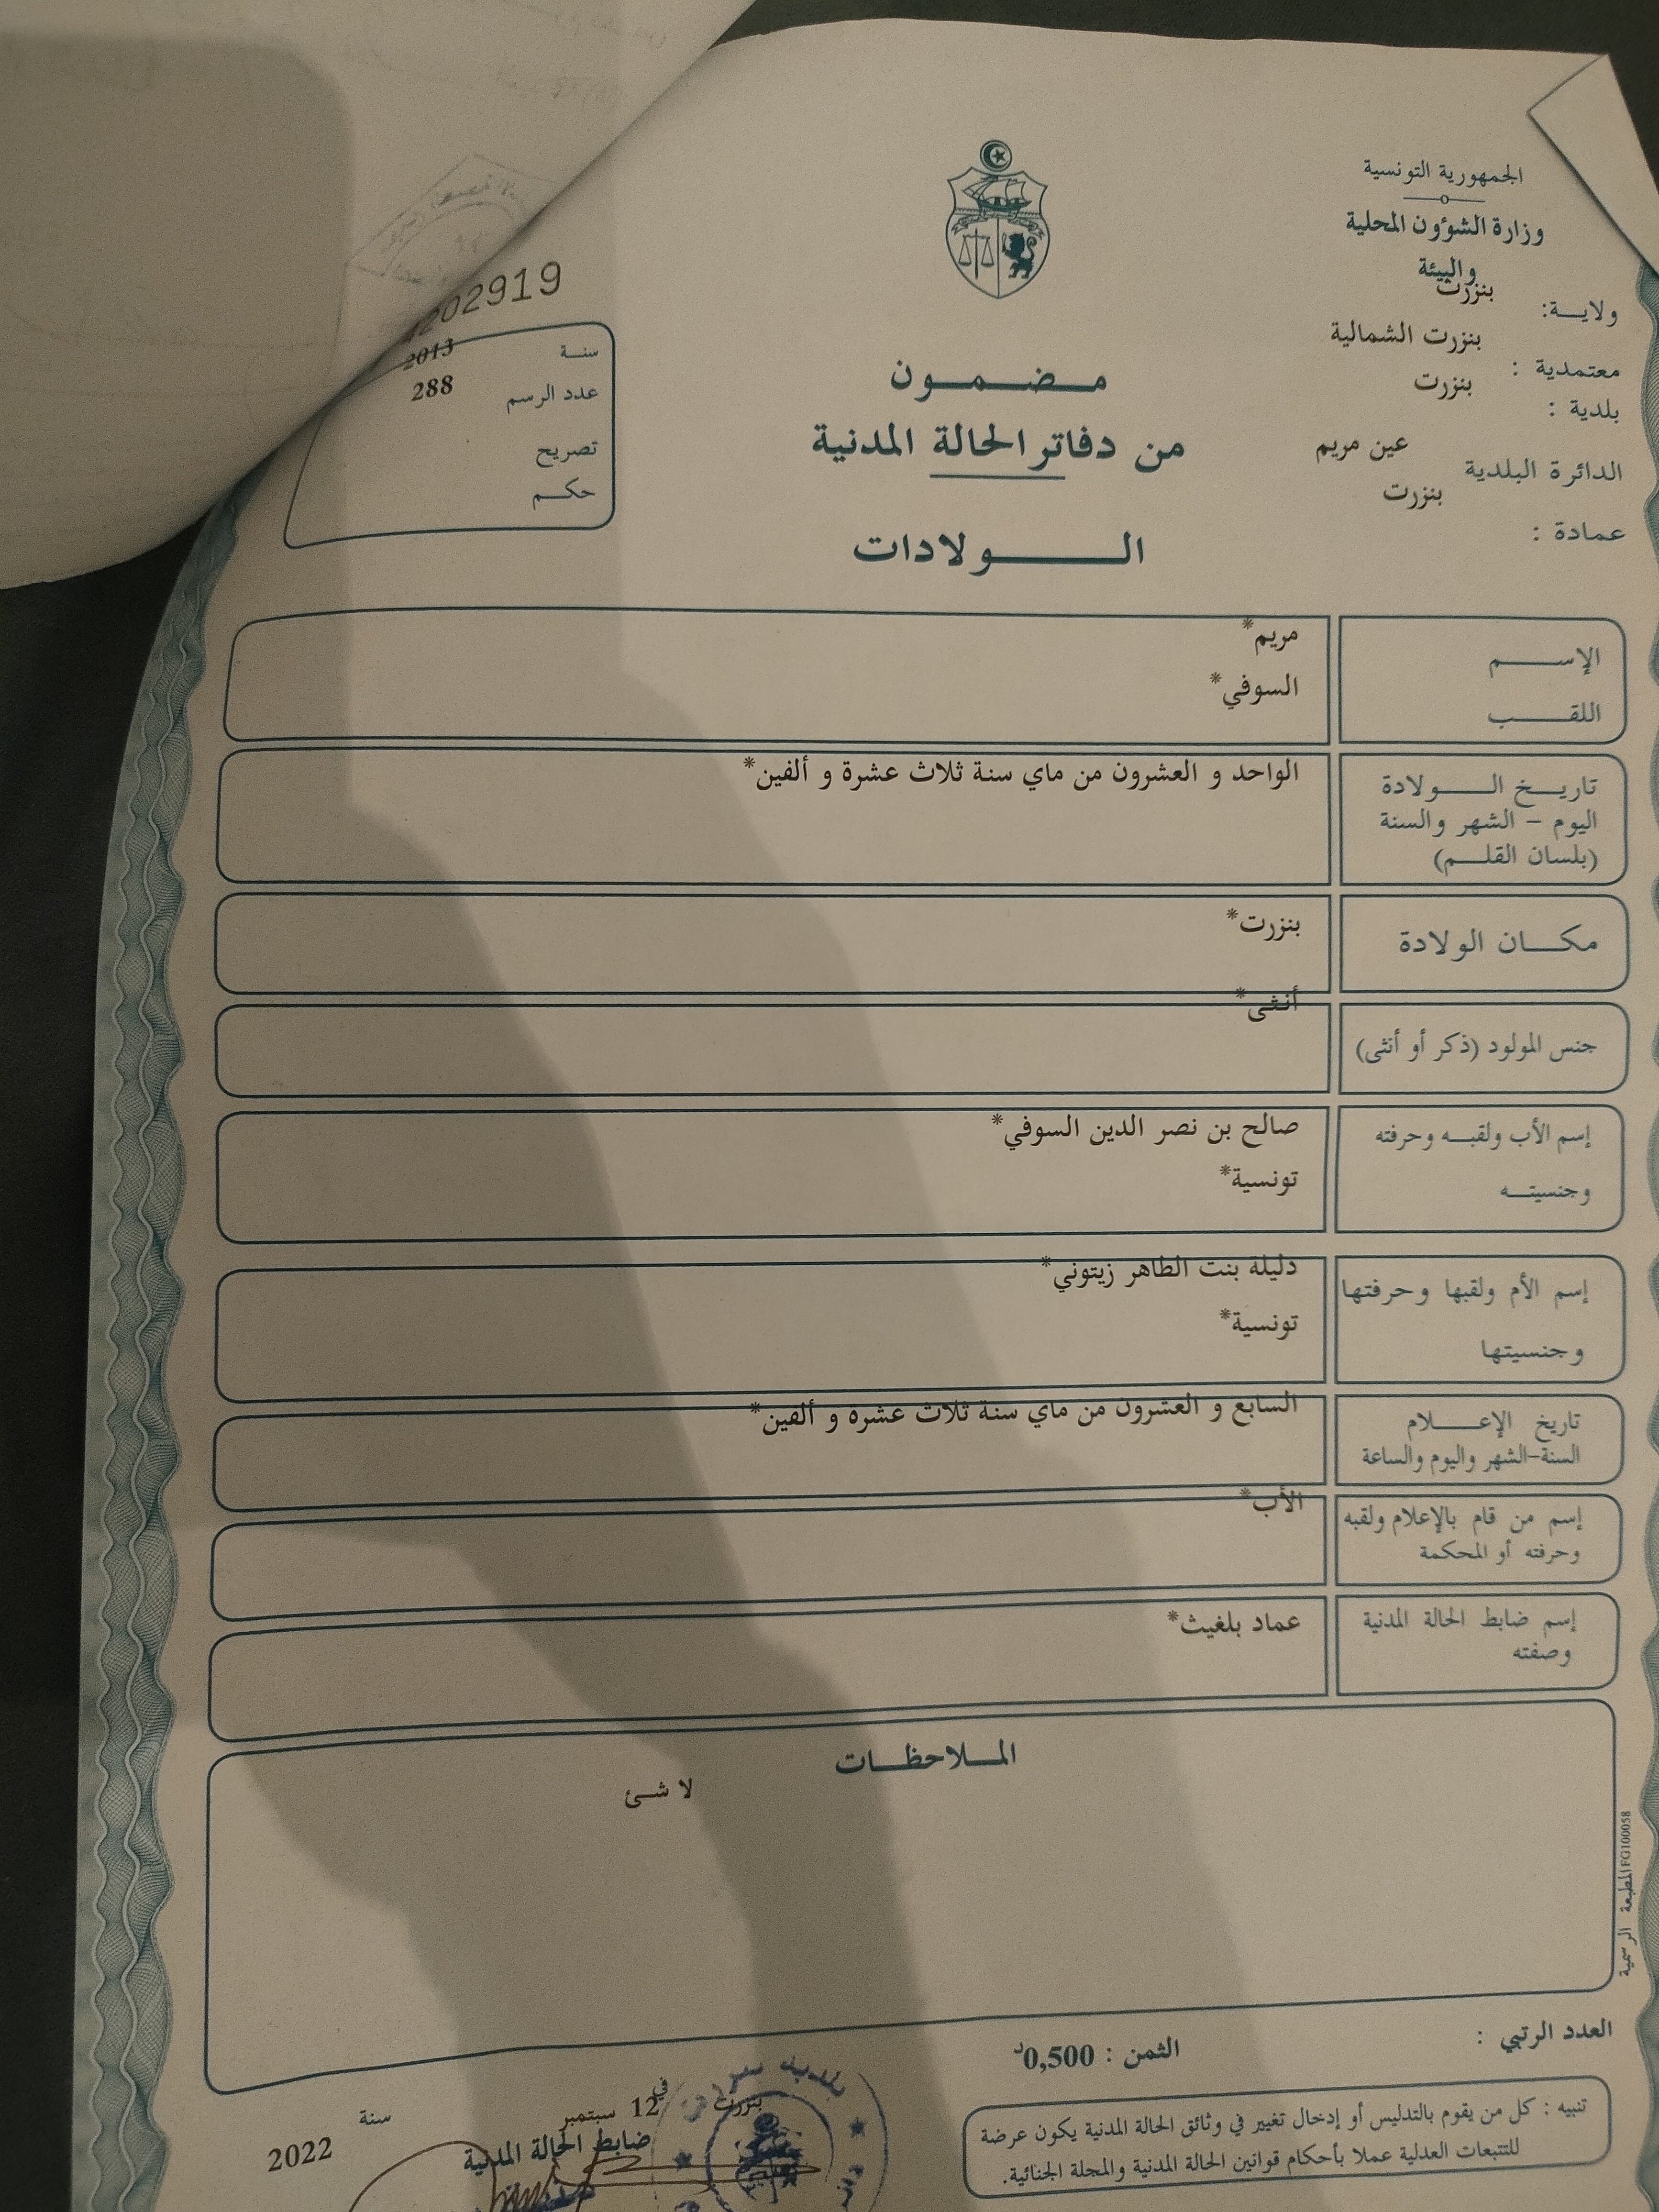 الجمهورية التونسية
وزارة الشؤون المحلية
والبيئة
ولاية: بنزرت
معتمدية : بنزرت الشمالية
بلدية : بنزرت
الدائرة البلدية عين مريم
عمادة : بنزرت
مضمون
من دفاتر الحالة المدنية
الولادات
202919
سنة 2013
عدد الرسم 288
تصريح
حكم
الإسم مريم*
اللقب السوفي*
تاريخ الولادة الواحد و العشرون من ماي سنة ثلاث عشرة و ألفين*
اليوم - الشهر والسنة
(بلسان القلم)
مكان الولادة بنزرت*
جنس المولود (ذكر أو أنثى) أنثى*
إسم الأب ولقبه وحرفته صالح بن نصر الدين السوفي*
وجنسيته تونسية*
إسم الأم ولقبها وحرفتها دليلة بنت الطاهر زيتوني*
وجنسيتها تونسية*
تاريخ الإعلام السابع و العشرون من ماي سنة ثلاث عشرة و ألفين*
السنة-الشهر واليوم والساعة
إسم من قام بالإعلام ولقبه الأب*
وحرفته أو المحكمة
إسم ضابط الحالة المدنية عماد بلغيث*
وصفته
الملاحظات
لا شئ
المطبعة الرسمية FG100058
العدد الرتبي :
الثمن : 0,500د
تنبيه : كل من يقوم بالتدليس أو إدخال تغيير في وثائق الحالة المدنية يكون عرضة
للتتبعات العدلية عملا بأحكام قوانين الحالة المدنية والمجلة الجنائية.
بنزرت في 12 سبتمبر سنة 2022
ضابط الحالة المدنية
بلدية بنزرت